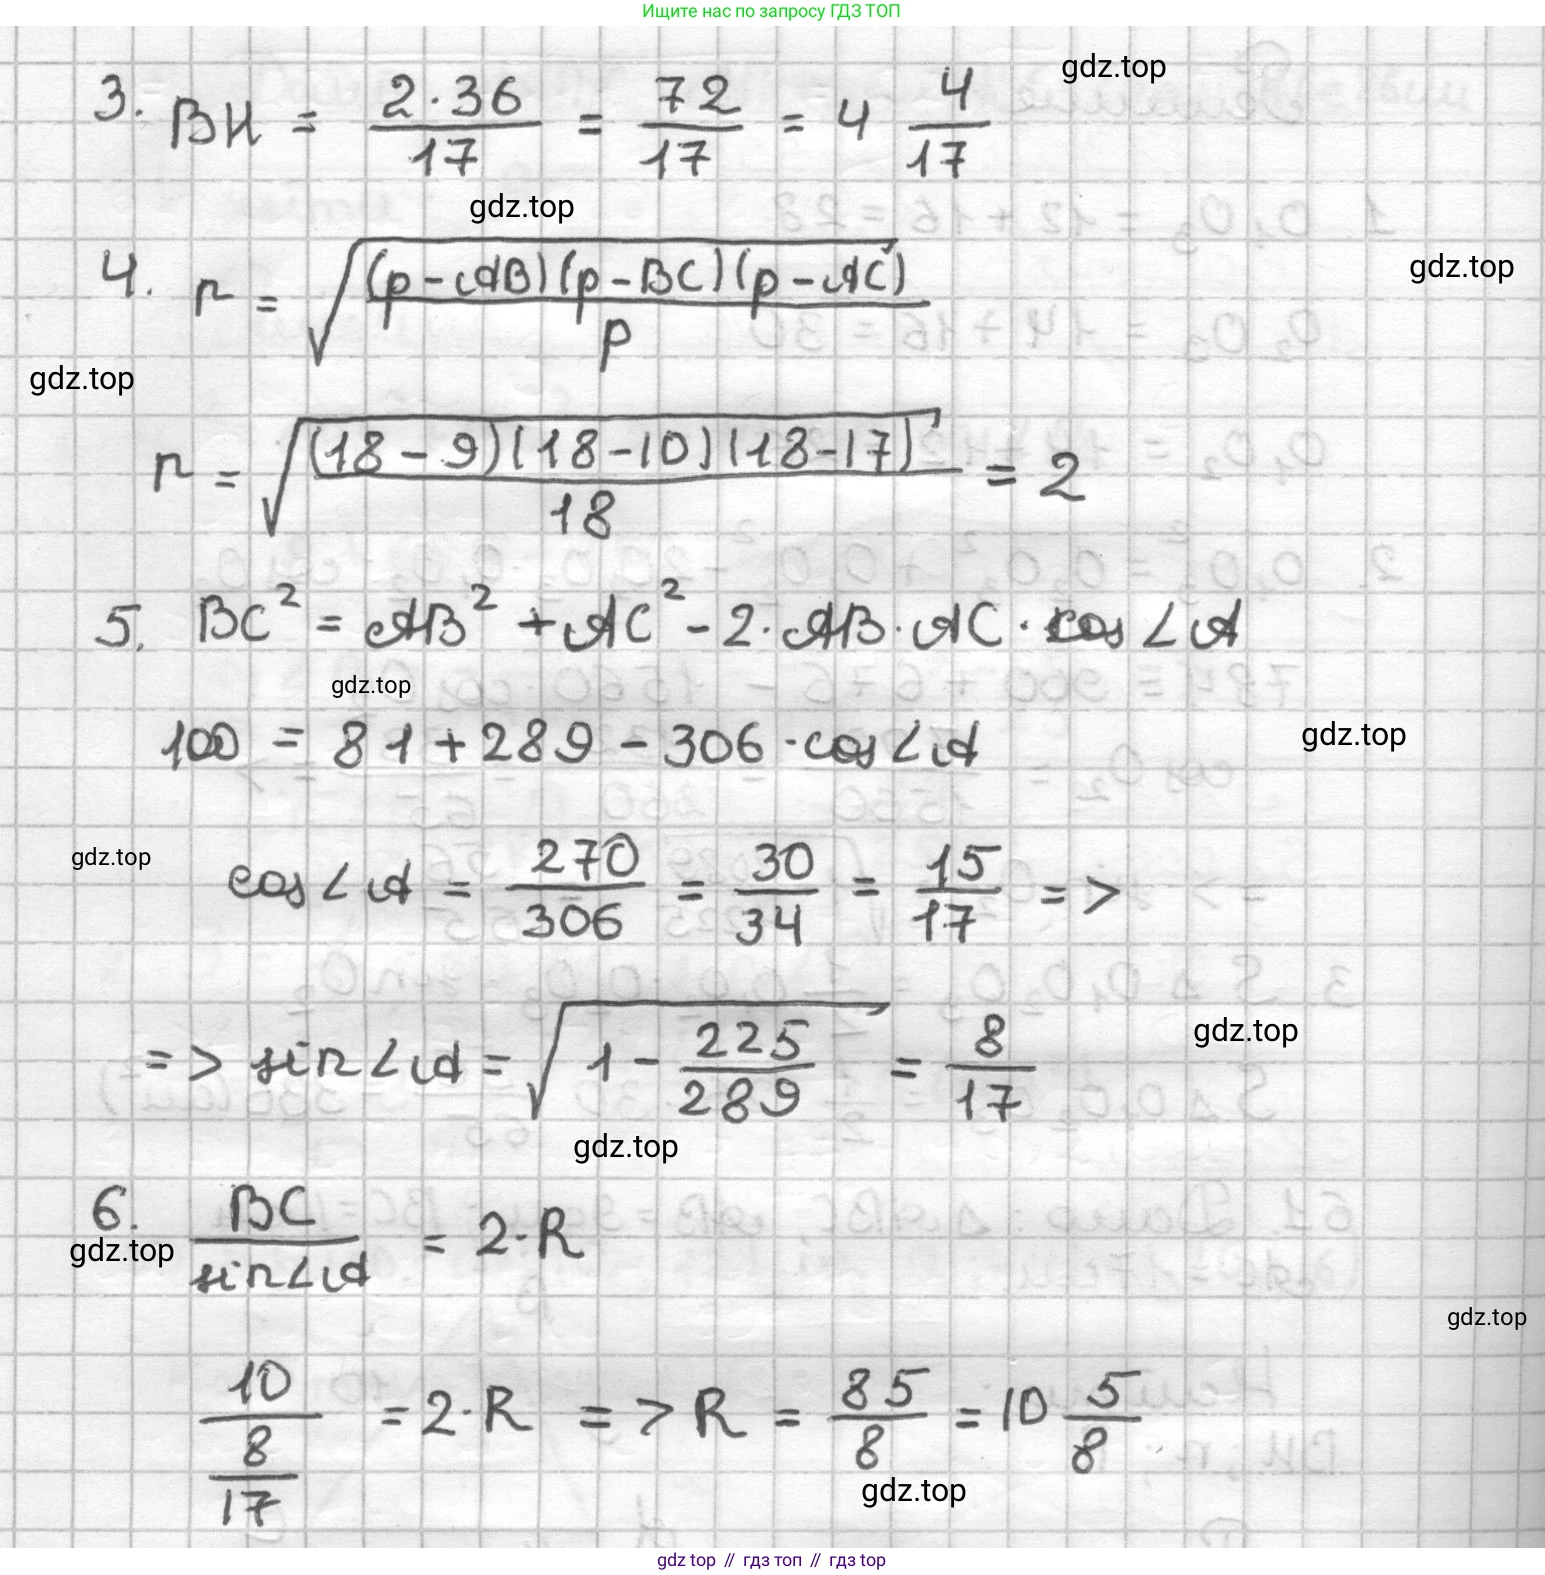 Ищите нас по запросу ГДЗ ТОП
gdz.top
3. BH = 2·36/17 = 72/17 = 4 4/17
gdz.top
gdz.top
4. r = √((p-AB)(p-BC)(p-AC)/p)
gdz.top
r = √((18-9)(18-10)(18-17)/18) = 2
5. BC² = AB² + AC² - 2·AB·AC·cos∠A
gdz.top
100 = 81 + 289 - 306·cos∠A
gdz.top
gdz.top
cos∠A = 270/306 = 30/34 = 15/17 =>
=> sin∠A = √(1 - 225/289) = 8/17
gdz.top
gdz.top
6. BC/sin∠A = 2·R
gdz.top
gdz.top
10/(8/17) = 2·R => R = 85/8 = 10 5/8
gdz.top
gdz top // гдз топ // gdz top